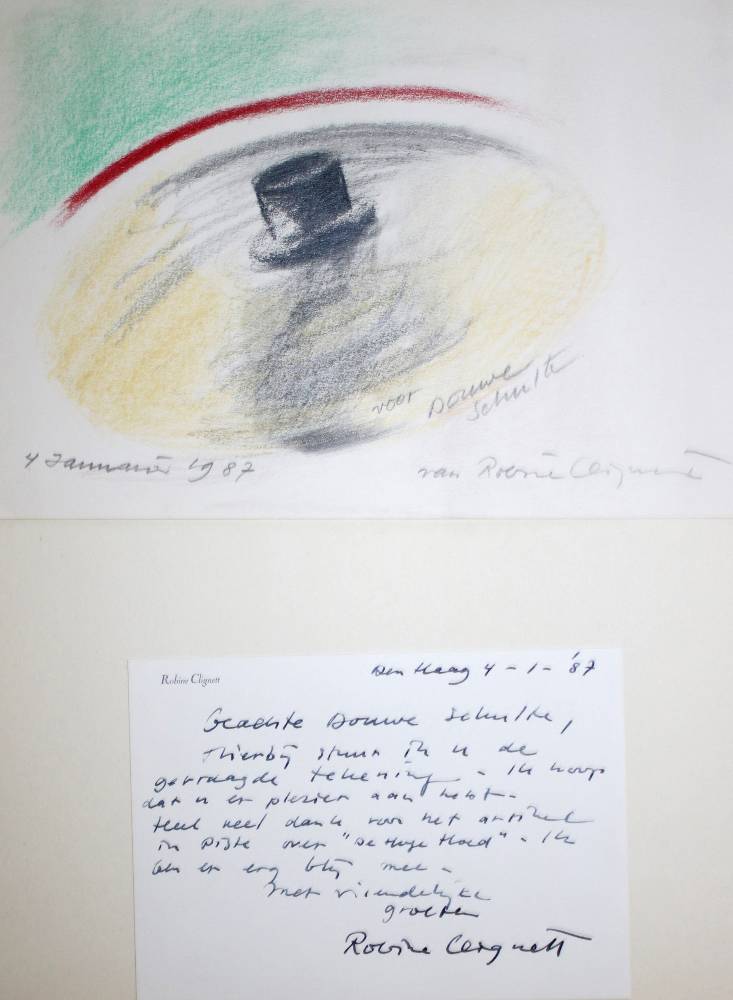 voor Douwe
Schulte
4 Januari 1987
van Robine Clignett
Robine Clignett
Den Haag 4-1-'87
Geachte Douwe Schulte,
Hierbij stuur ik u de
gevraagde tekening - Ik hoop
dat u er plezier aan hebt -
Heel veel dank voor het artikel
in Piste over "De Hoge Hoed" - Ik
ben er erg blij mee -
Met vriendelijke
groeten
Robine Clignett